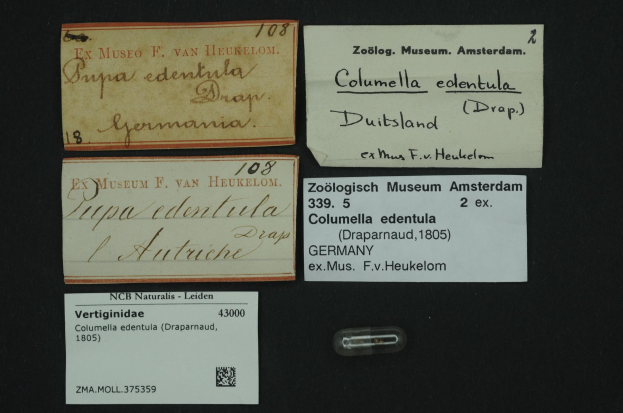 108
Ex Museo F. van Heukelom.
Pupa edentula
Drap.
Germania.
18
2
Zoölog. Museum. Amsterdam.
Columella edentula
(Drap.)
Duitsland
ex Mus F.v. Heukelom
108
Ex Museum F. van Heukelom.
Pupa edentula
Drap
Autriche
Zoölogisch Museum Amsterdam
339. 5 2 ex.
Columella edentula
(Draparnaud,1805)
GERMANY
ex.Mus. F.v.Heukelom
NCB Naturalis - Leiden
Vertiginidae 43000
Columella edentula (Draparnaud,
1805)
ZMA.MOLL.375359